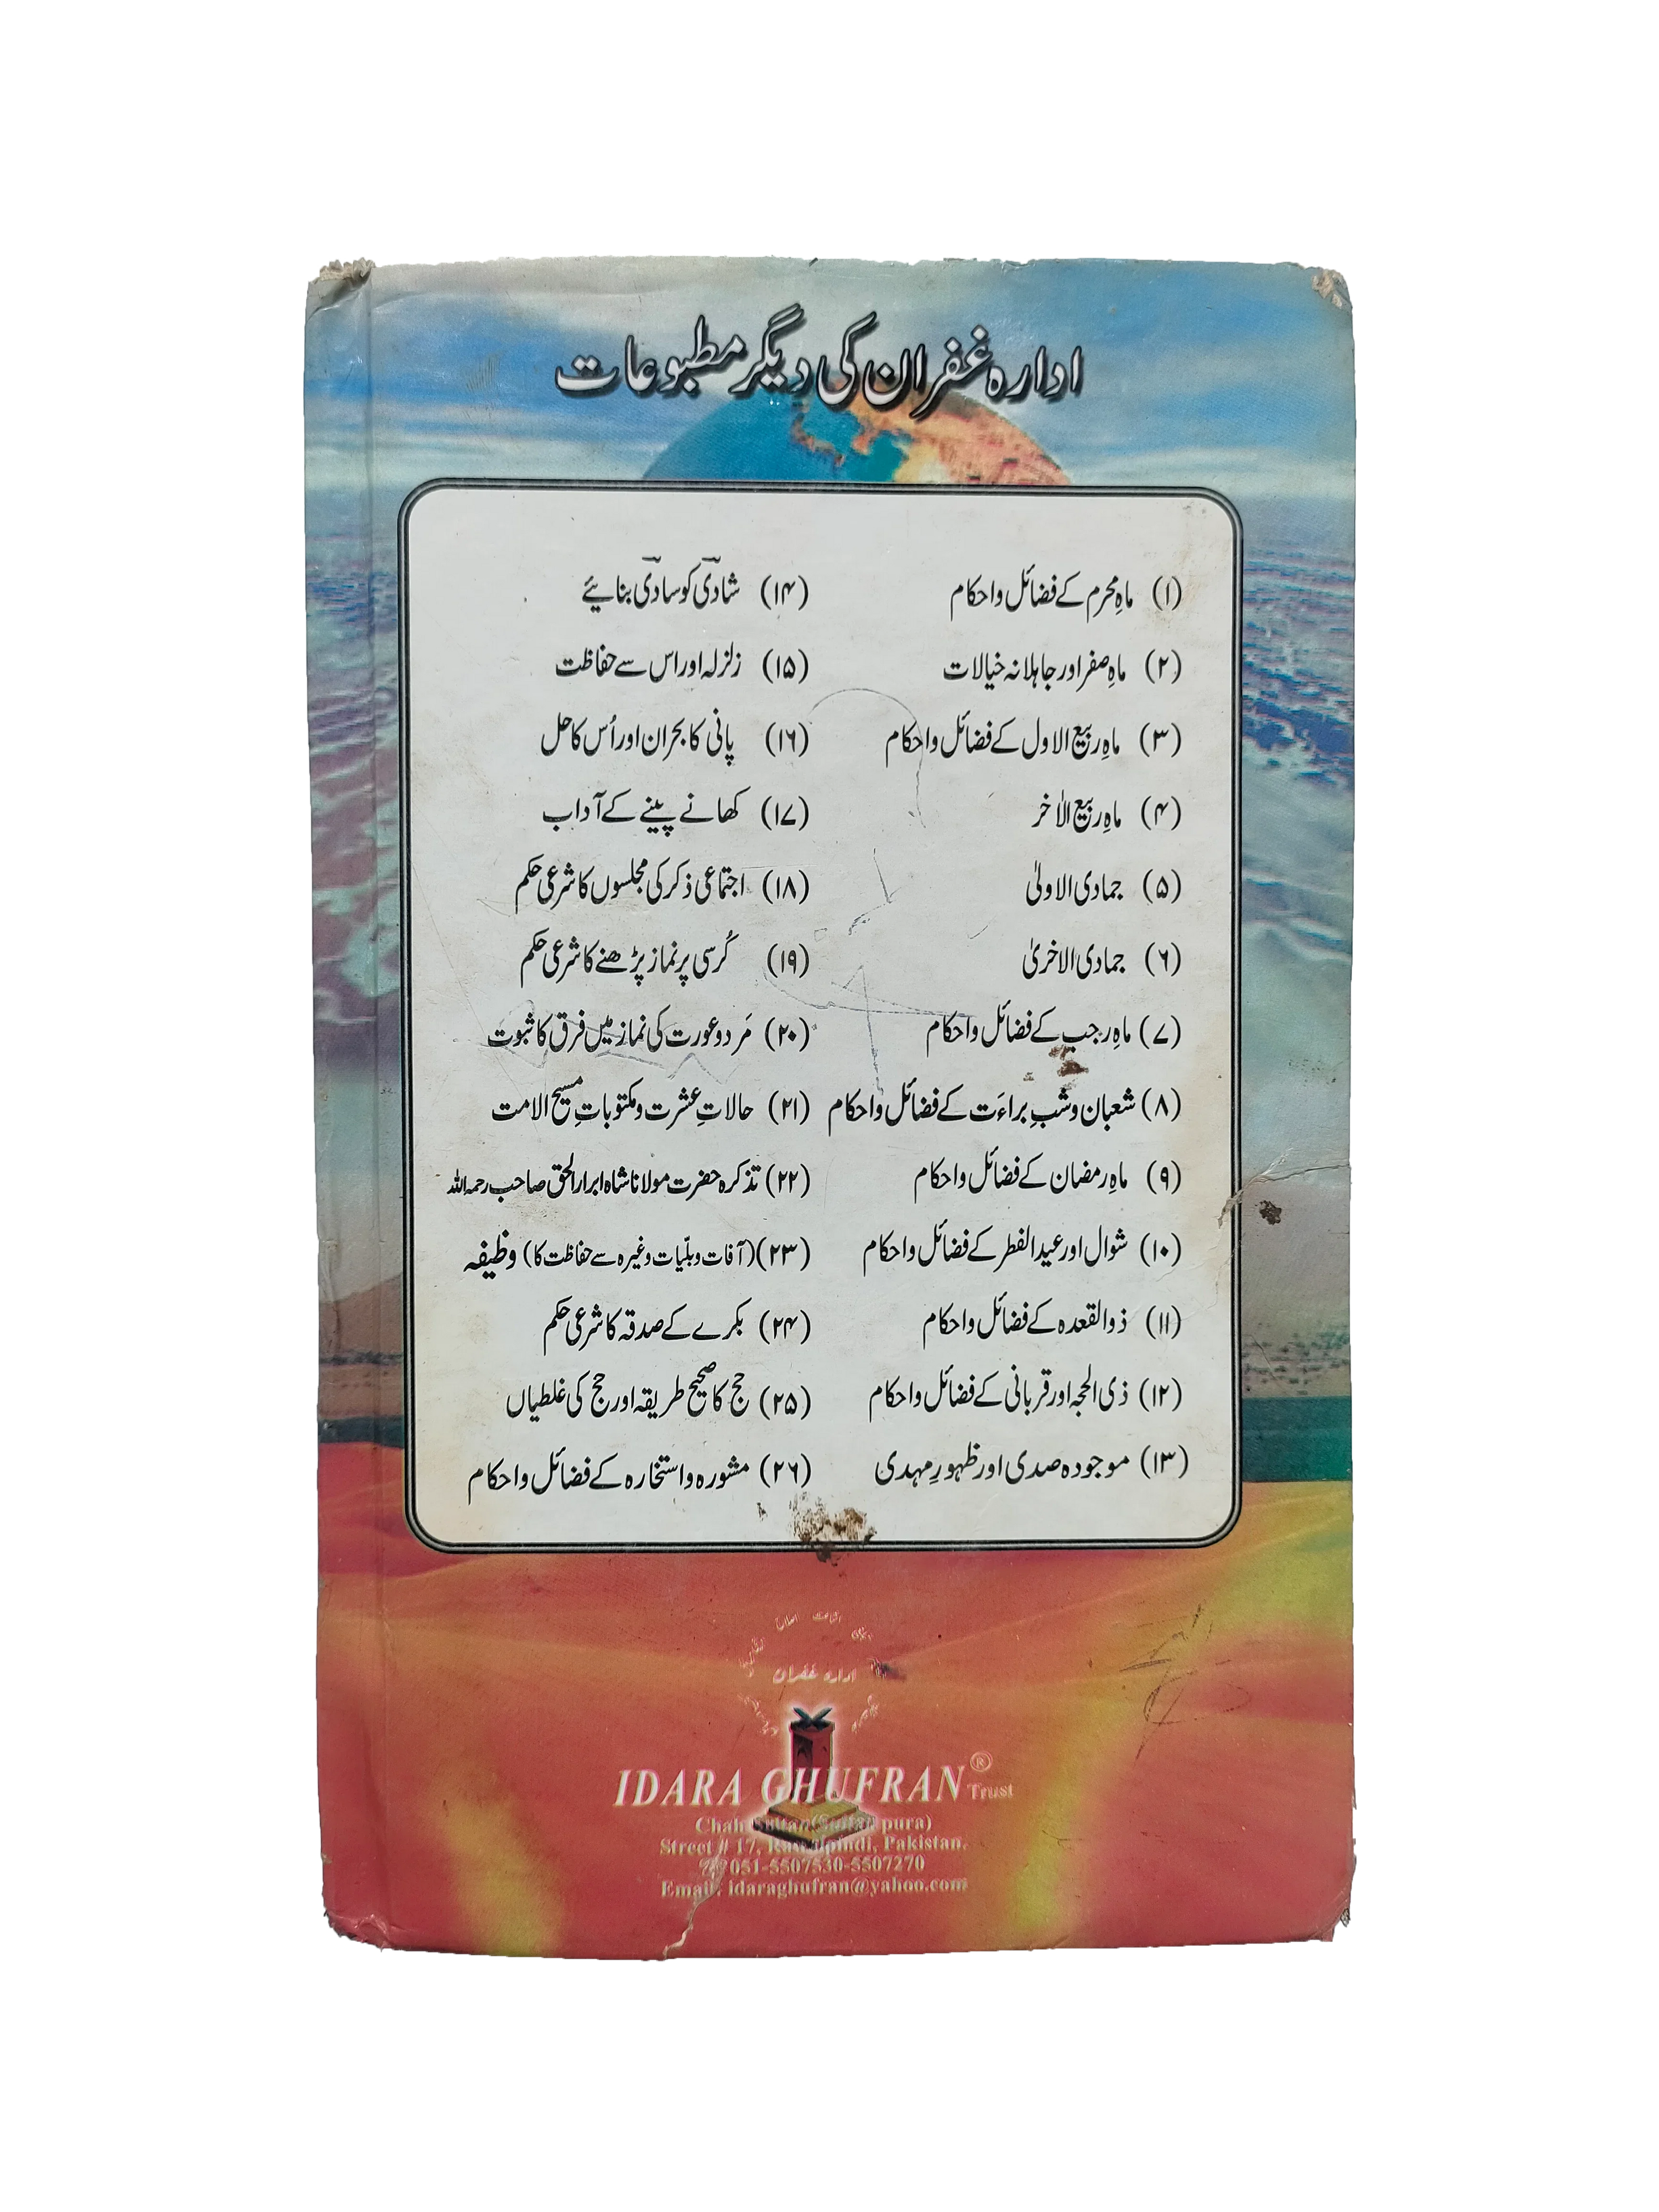 ادارہ غفران کی دیگر مطبوعات
(۱) ماہِ محرم کے فضائل و احکام
(۲) ماہِ صفر اور جاہلانہ خیالات
(۳) ماہِ ربیع الاول کے فضائل و احکام
(۴) ماہِ ربیع الاٰخر
(۵) جمادی الاولیٰ
(۶) جمادی الاخریٰ
(۷) ماہِ رجب کے فضائل و احکام
(۸) شعبان و شبِ براءَت کے فضائل و احکام
(۹) ماہِ رمضان کے فضائل و احکام
(۱۰) شوال اور عید الفطر کے فضائل و احکام
(۱۱) ذوالقعدہ کے فضائل و احکام
(۱۲) ذی الحجہ اور قربانی کے فضائل و احکام
(۱۳) موجودہ صدی اور ظہورِ مہدی
(۱۴) شادی کو سادی بنائیے
(۱۵) زلزلہ اور اس سے حفاظت
(۱۶) پانی کا بحران اور اُس کا حل
(۱۷) کھانے پینے کے آداب
(۱۸) اجتماعی ذکر کی مجلسوں کا شرعی حکم
(۱۹) کُرسی پر نماز پڑھنے کا شرعی حکم
(۲۰) مَرد و عورت کی نماز میں فرق کا ثبوت
(۲۱) حالاتِ عشرت و مکتوباتِ مسیح الامت
(۲۲) تذکرہ حضرت مولانا شاہ ابرار الحق صاحب رحمہ اللہ
(۲۳) (آفات و بلیّات وغیرہ سے حفاظت کا) وظیفہ
(۲۴) بکرے کے صدقہ کا شرعی حکم
(۲۵) حج کا صحیح طریقہ اور حج کی غلطیاں
(۲۶) مشورہ و استخارہ کے فضائل و احکام
ادارہ غفران
IDARA GHUFRAN® Trust
Chah Sultan(Sultanpura)
Street # 17, Rawalpindi, Pakistan.
051-5507530-5507270
Email: idaraghufran@yahoo.com